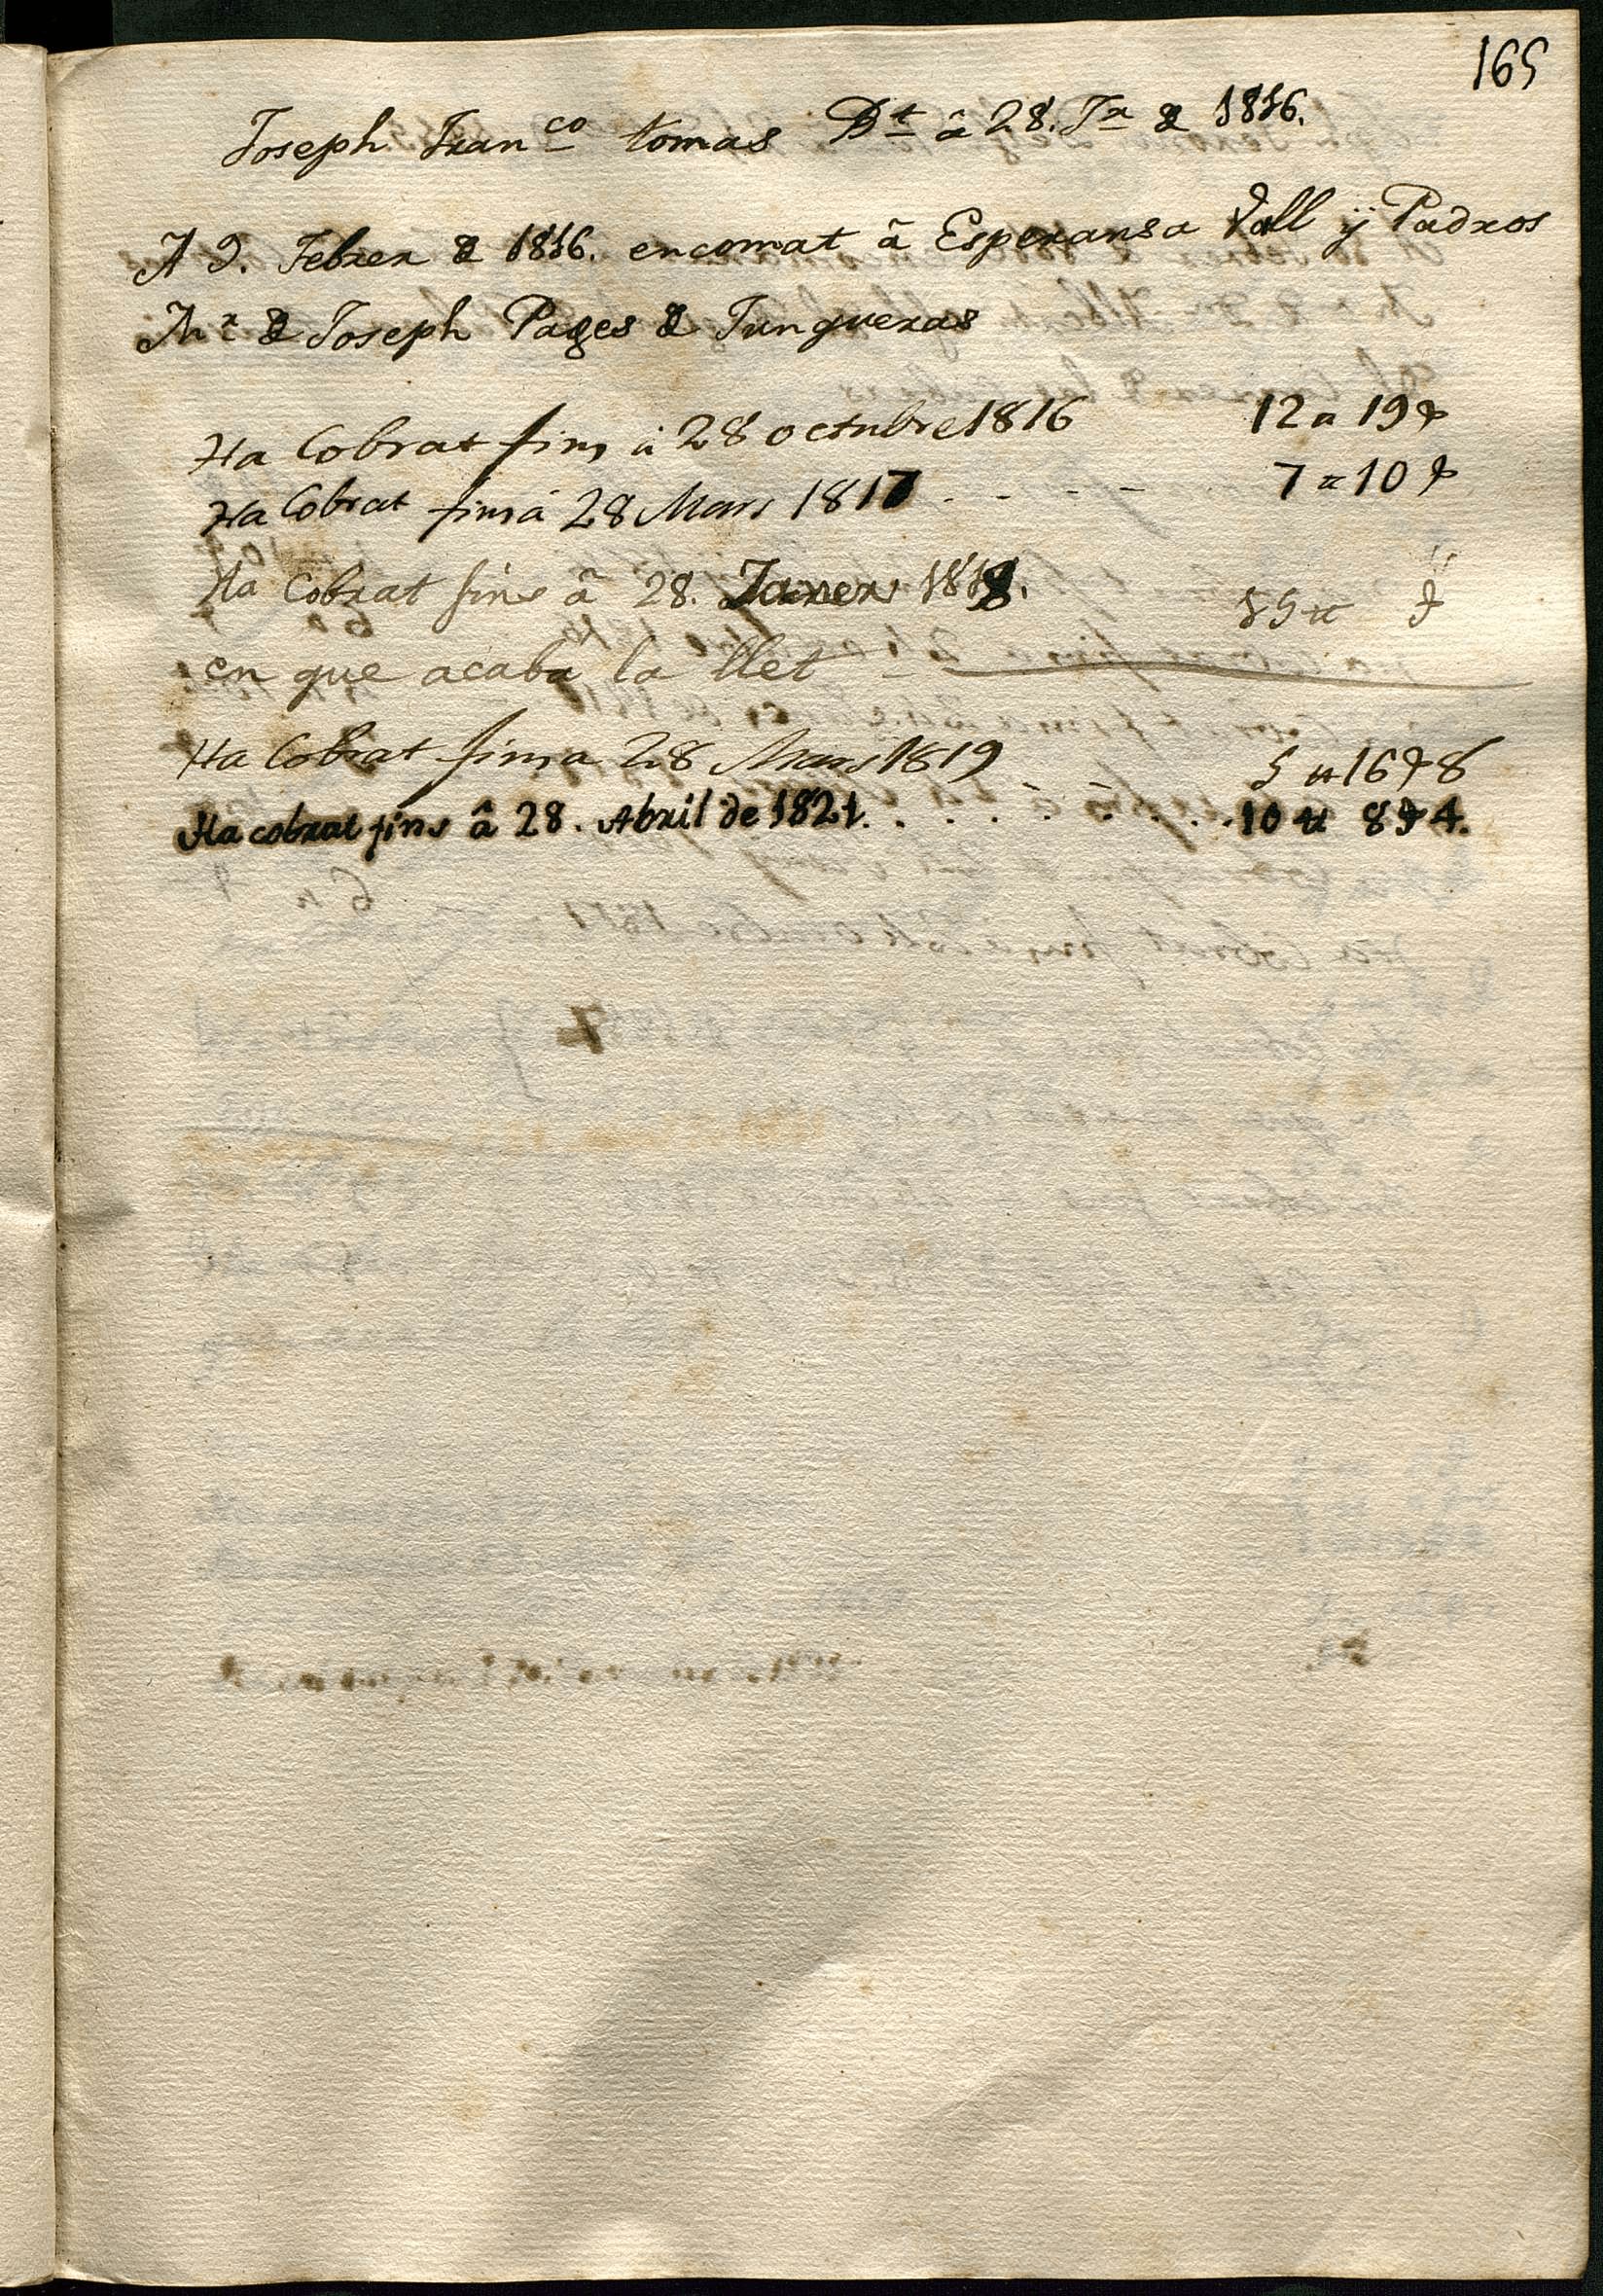 165
Joseph Franco tomas Bt â 28. Jr & 1816.
A 9. Febrer & 1816. encomat â Esperansa Vall ÿ Padros
Mr & Joseph Pages & Junqueras
Ha Cobrat fins â 28 octubre 1816 12 ℔ 19 ß
Ha Cobrat fins â 28 Mars 1817 . - - - - 7 ℔ 10 ß
Ha Cobrat fins â 28. Janer 1818. 15 ℔ " ß
en que acaba la llet -
Ha Cobrat fins a 28 Mars 1819 . . . . 5 ℔ 16 ß 8
Ha cobrat fins â 28. Abril de 1821. . . . . . . . . . 10 ℔ 8 ß 4.